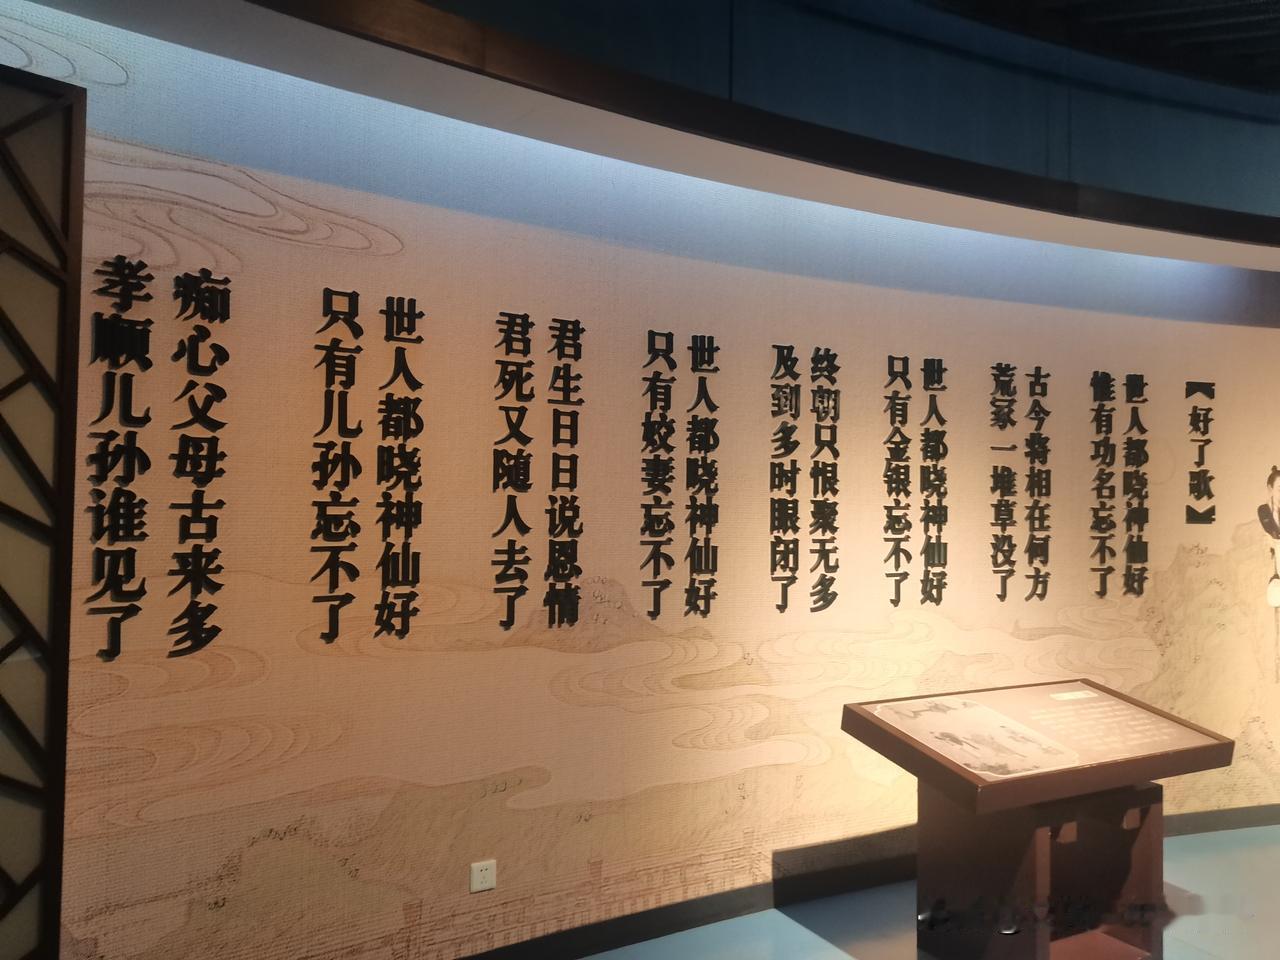 【好了歌】
世人都晓神仙好
惟有功名忘不了
古今将相在何方
荒冢一堆草没了
世人都晓神仙好
只有金银忘不了
终朝只恨聚无多
及到多时眼闭了
世人都晓神仙好
只有姣妻忘不了
君生日日说恩情
君死又随人去了
世人都晓神仙好
只有儿孙忘不了
痴心父母古来多
孝顺儿孙谁见了